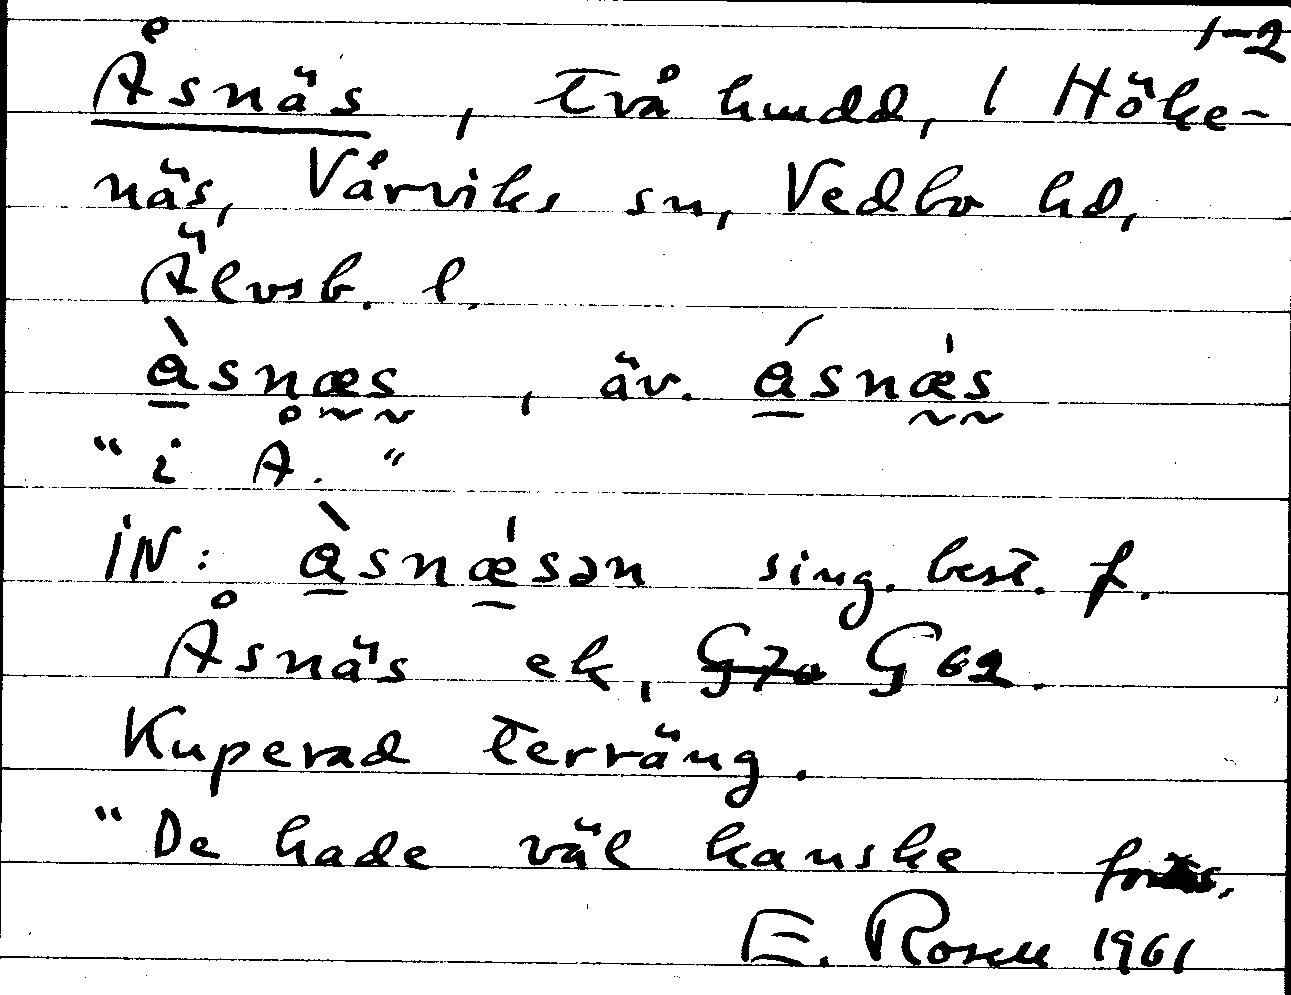 1-2
Åsnäs, två hmdd, i Höke-
näs, Vårviks sn, Vedbo hd,
Älvsb. l.
àsnæs, äv. ásnæ̀s
"i Å."
IN: àsnæ̀sən sing. best. f.
Åsnäs ek, G70 G62.
Kuperad terräng.
"De hade väl kanske forts.
E. Rosell 1961